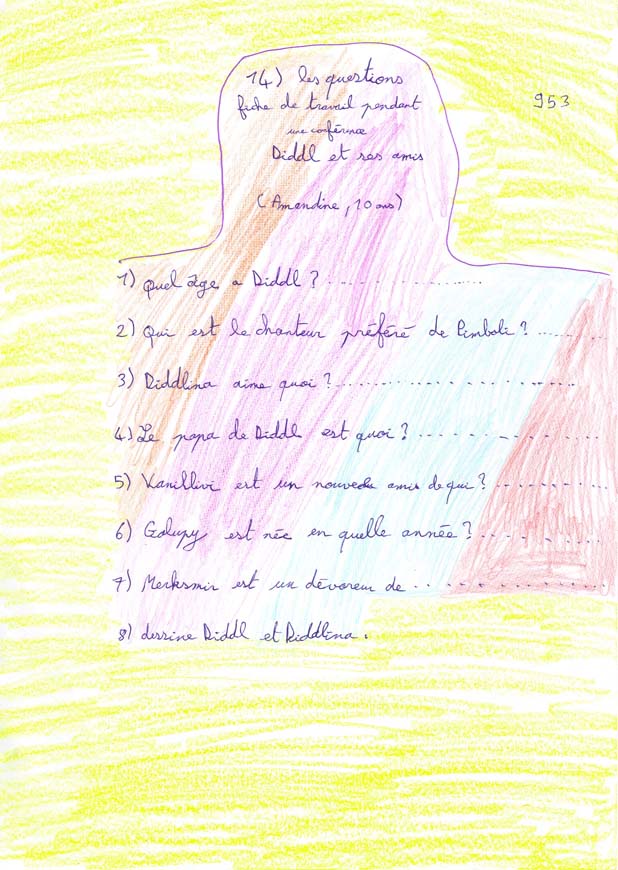 14) les questions
953
fiche de travail pendant
une conférence
Diddl et ses amis
(Amandine, 10 ans)
1) Quel âge a Diddl ? ....................
2) Qui est le chanteur préféré de Pimboli ? ..........
3) Diddlina aime quoi ? ....................
4) Le papa de Diddl est quoi ? ....................
5) Vanillivi est un nouveau amis de qui ? ............
6) Galupy est née en quelle année ? ............
7) Merksmir est un dévoreur de ....................
8) dessine Diddl et Diddlina.